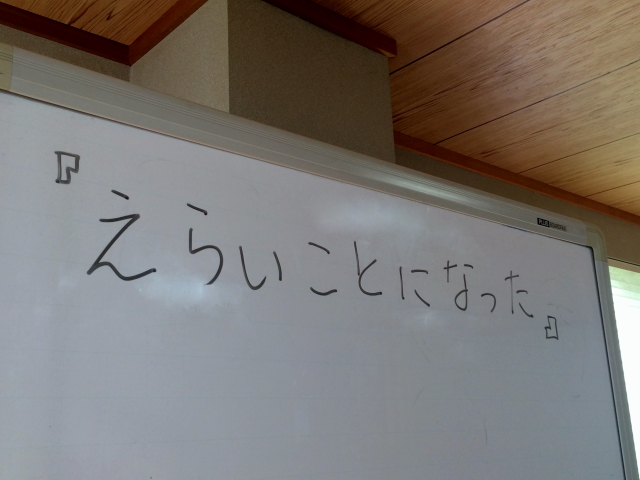 『えらいことになった』
PLUS